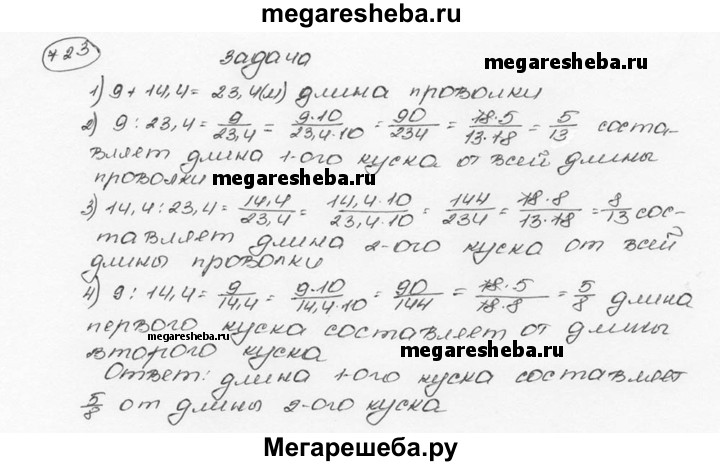 megaresheba.ru
723
задача
megaresheba.ru
1) 9 + 14,4 = 23,4 (м) длина проволки
2) 9 : 23,4 = 9/23,4 = 9·10/23,4·10 = 90/234 = 18·5/13·18 = 5/13 соста-
вляет длина 1-ого куска от всей длины
проволки megaresheba.ru
3) 14,4 : 23,4 = 14,4/23,4 = 14,4·10/23,4·10 = 144/234 = 18·8/13·18 = 8/13 сос-
тавляет длина 2-ого куска от всей
длины проволки
4) 9 : 14,4 = 9/14,4 = 9·10/14,4·10 = 90/144 = 18·5/18·8 = 5/8 длина
первого куска составляет от длины
megaresheba.ru
второго куска
megaresheba.ru
Ответ: длина 1-ого куска составляет
5/8 от длины 2-ого куска
Мегарешеба.ру